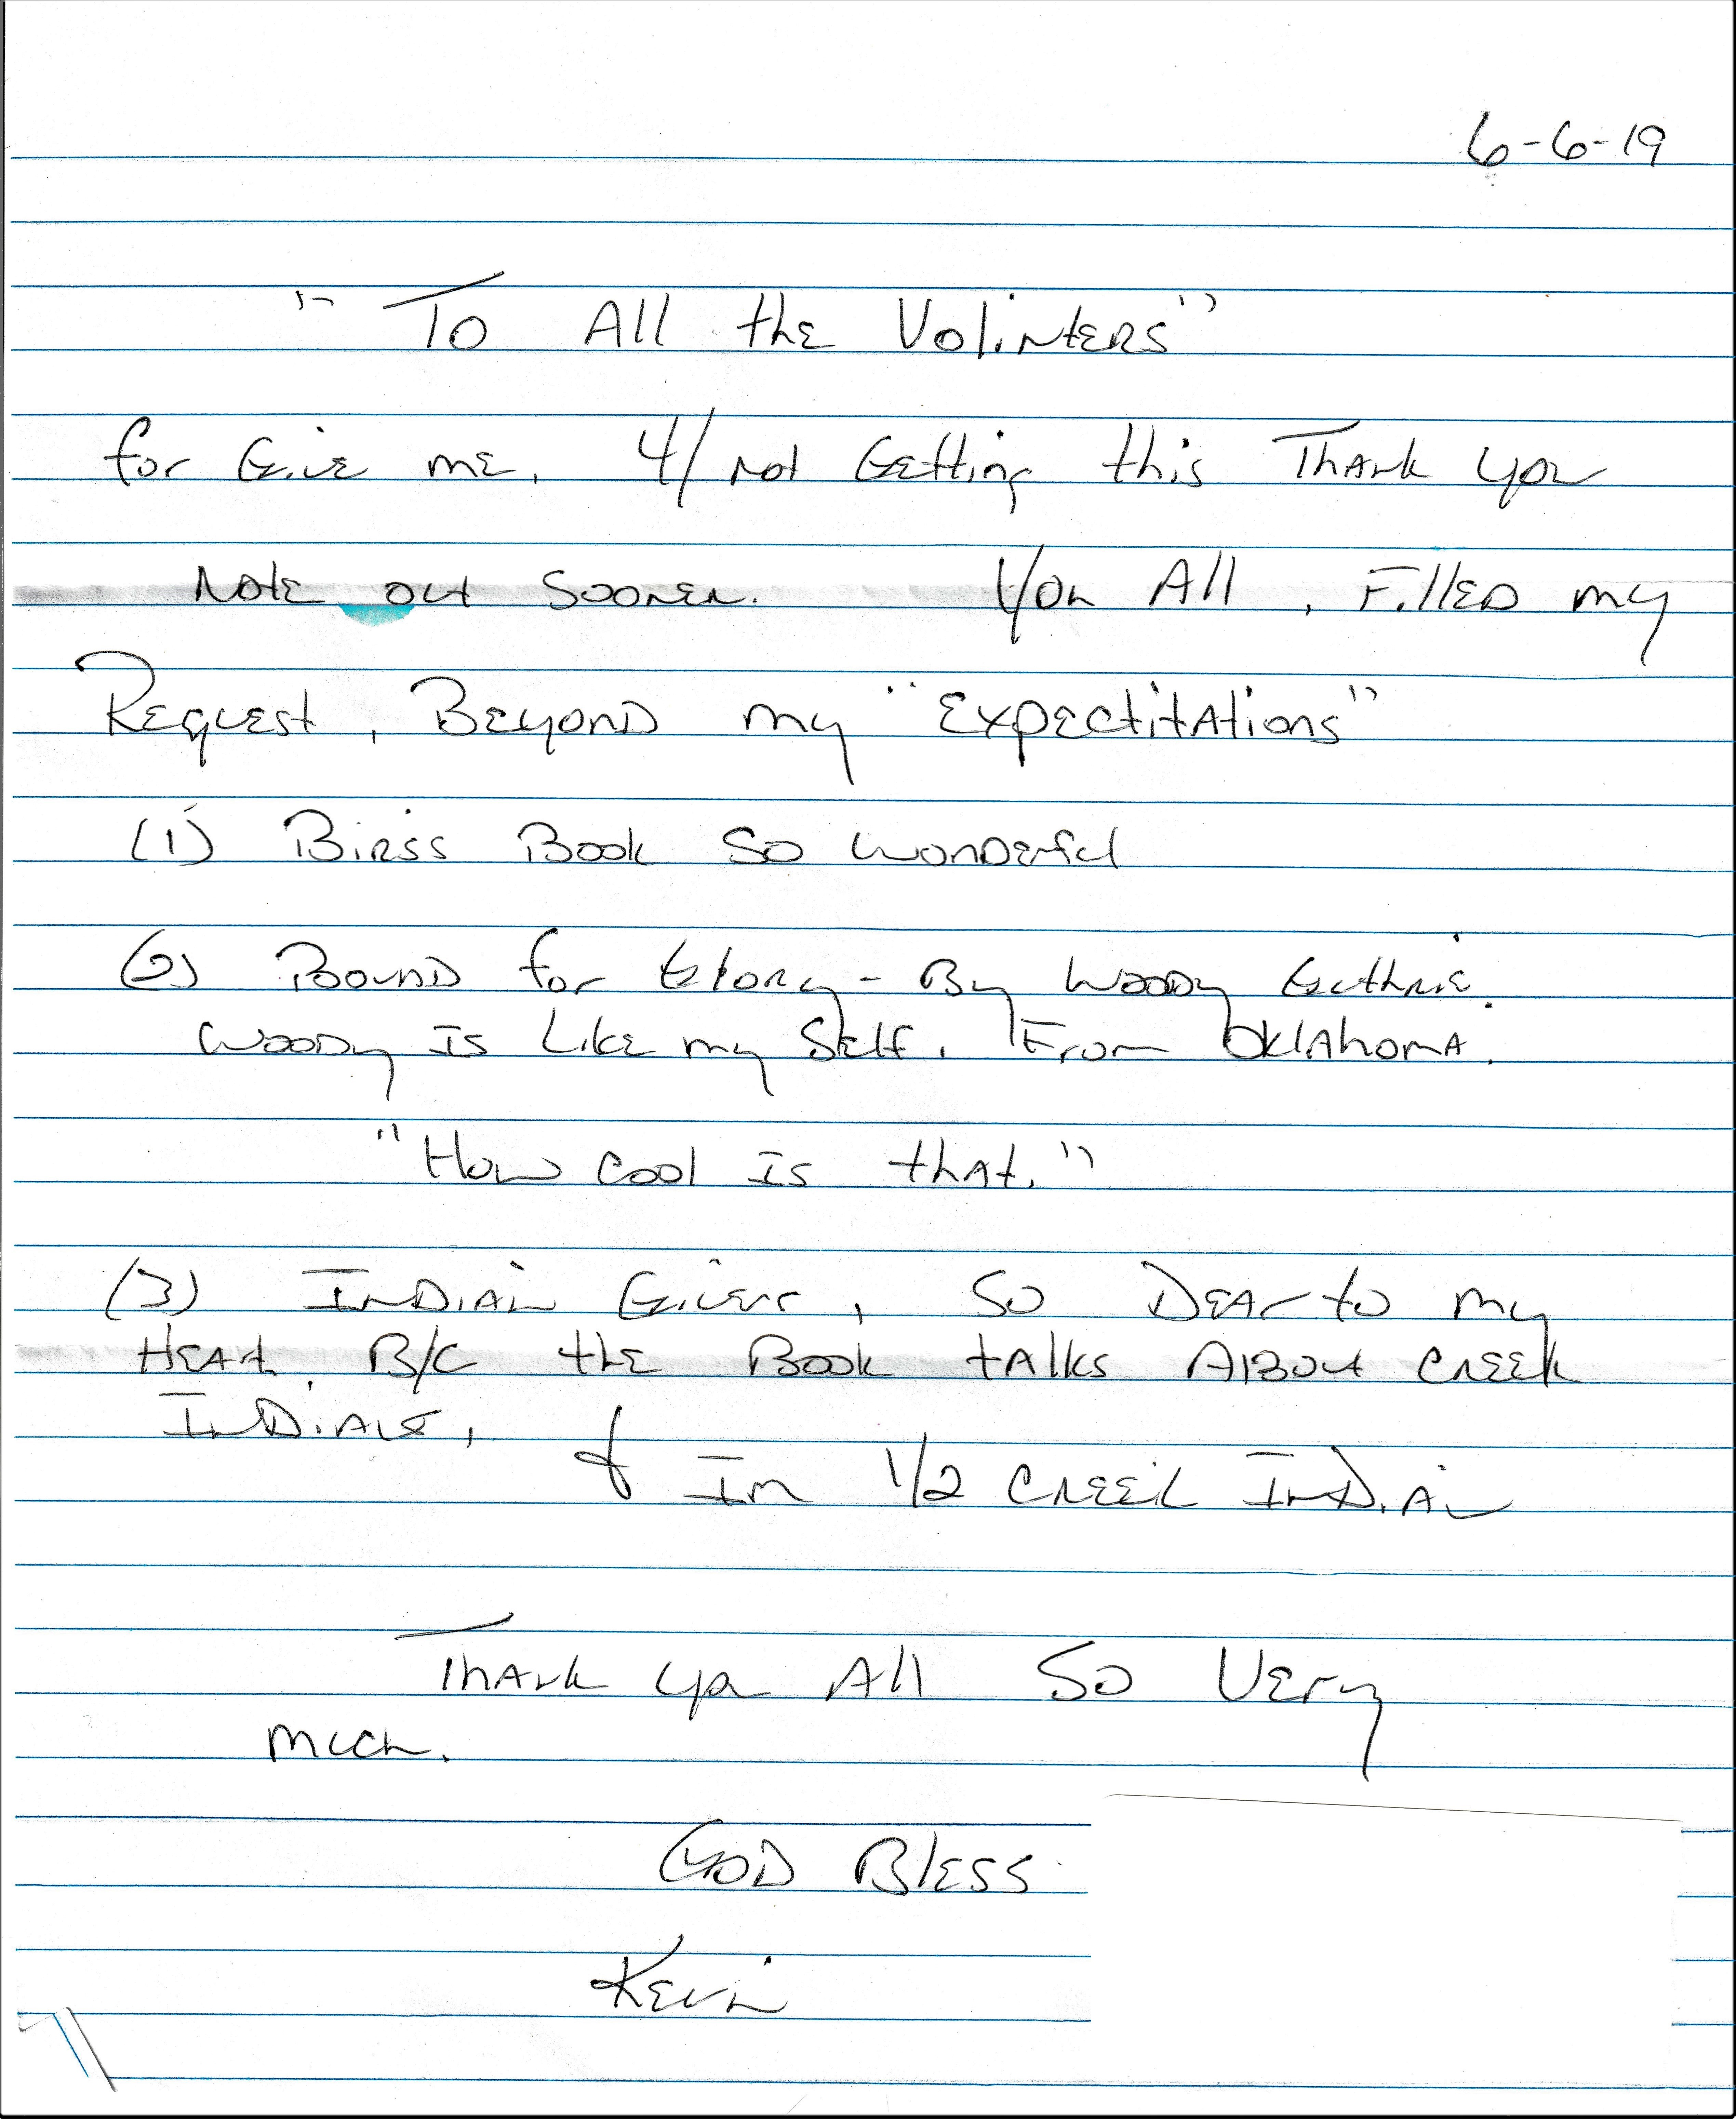 6-6-19
" To All the Volinters"
for Give me. 4/ not Getting this Thank you
Note out Sooner. You All, Filled my
Request, Beyond my "Expectitations"
(1) Birss Book So wonderful
(2) Bound for Glory - By Woody Guthrie.
Woody Is Like my Self. From Oklahoma.
"How Cool Is that."
(3) Indian Givers, So Dear to my
Heart. B/C the Book talks About Creek
Indians,
& Im 1/2 Creek Indian
Thank you All So Very
much.
God Bless
Kevin